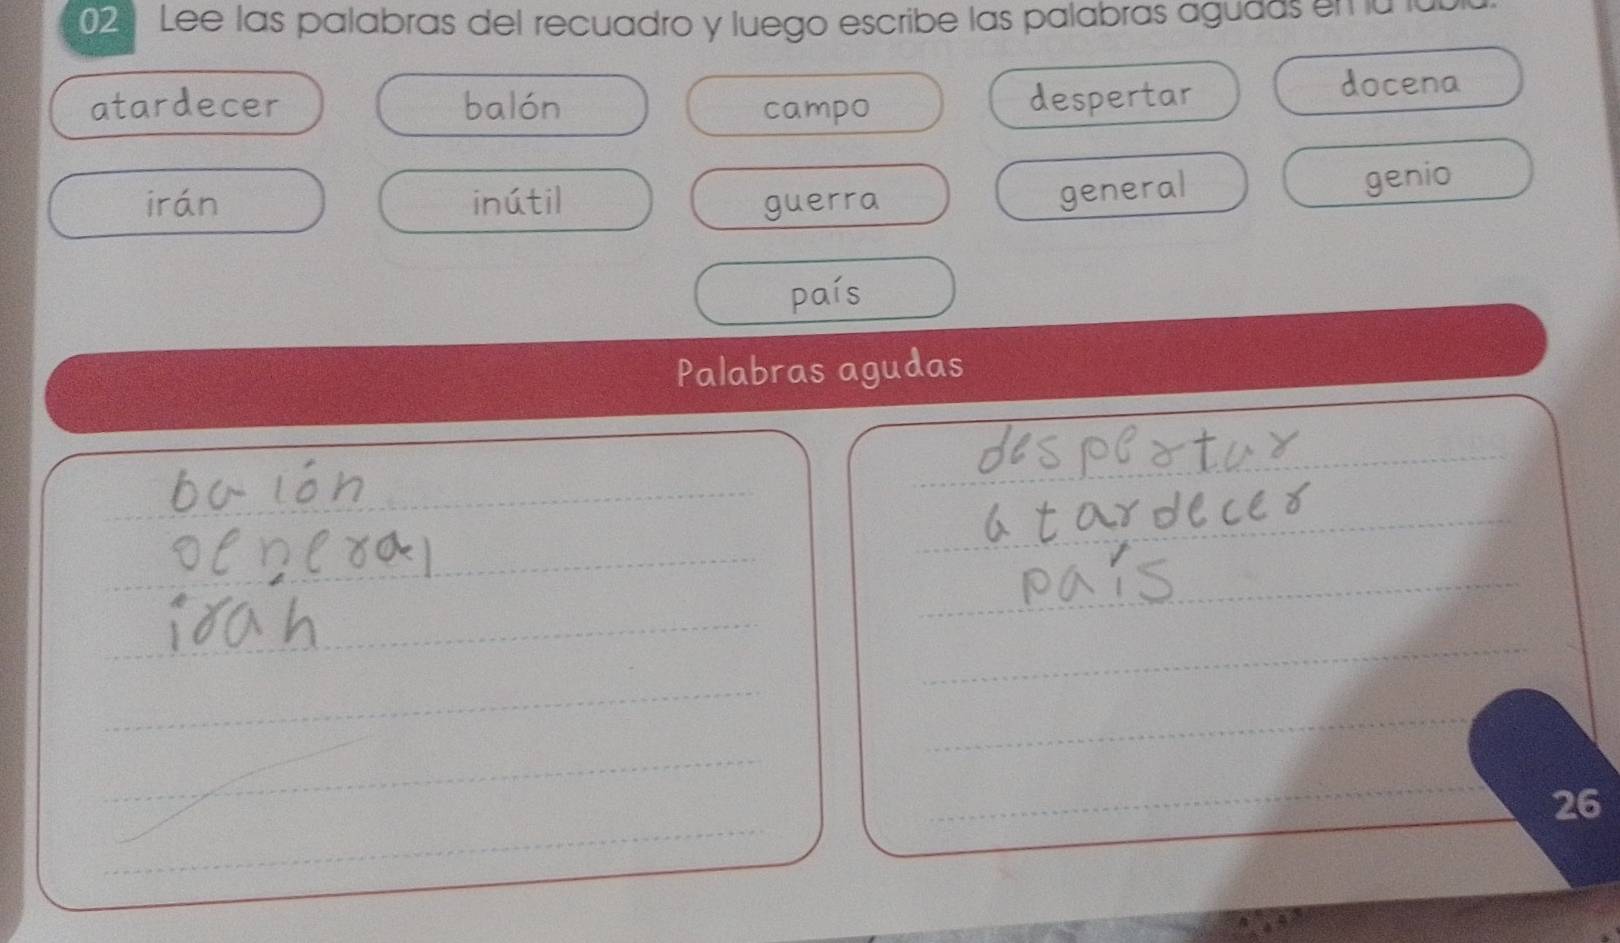 02 Lee las palabras del recuadro y luego escribe las palabras agudas en la tabla.
atardecer balón campo despertar docena
irán inútil guerra general genio
país
Palabras agudas
balón
general
irán
despertar
atardecer
país
26